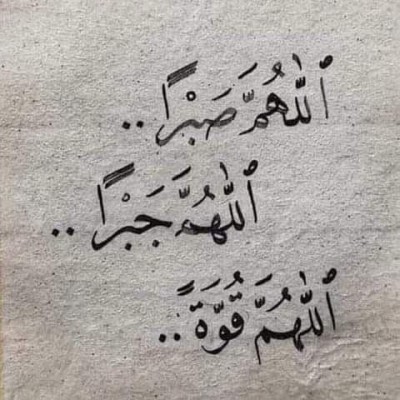 ٱللّٰهُمَّ صَبْرًا ..
ٱللّٰهُمَّ جَبْرًا ..
ٱللّٰهُمَّ قُوَّةً ..